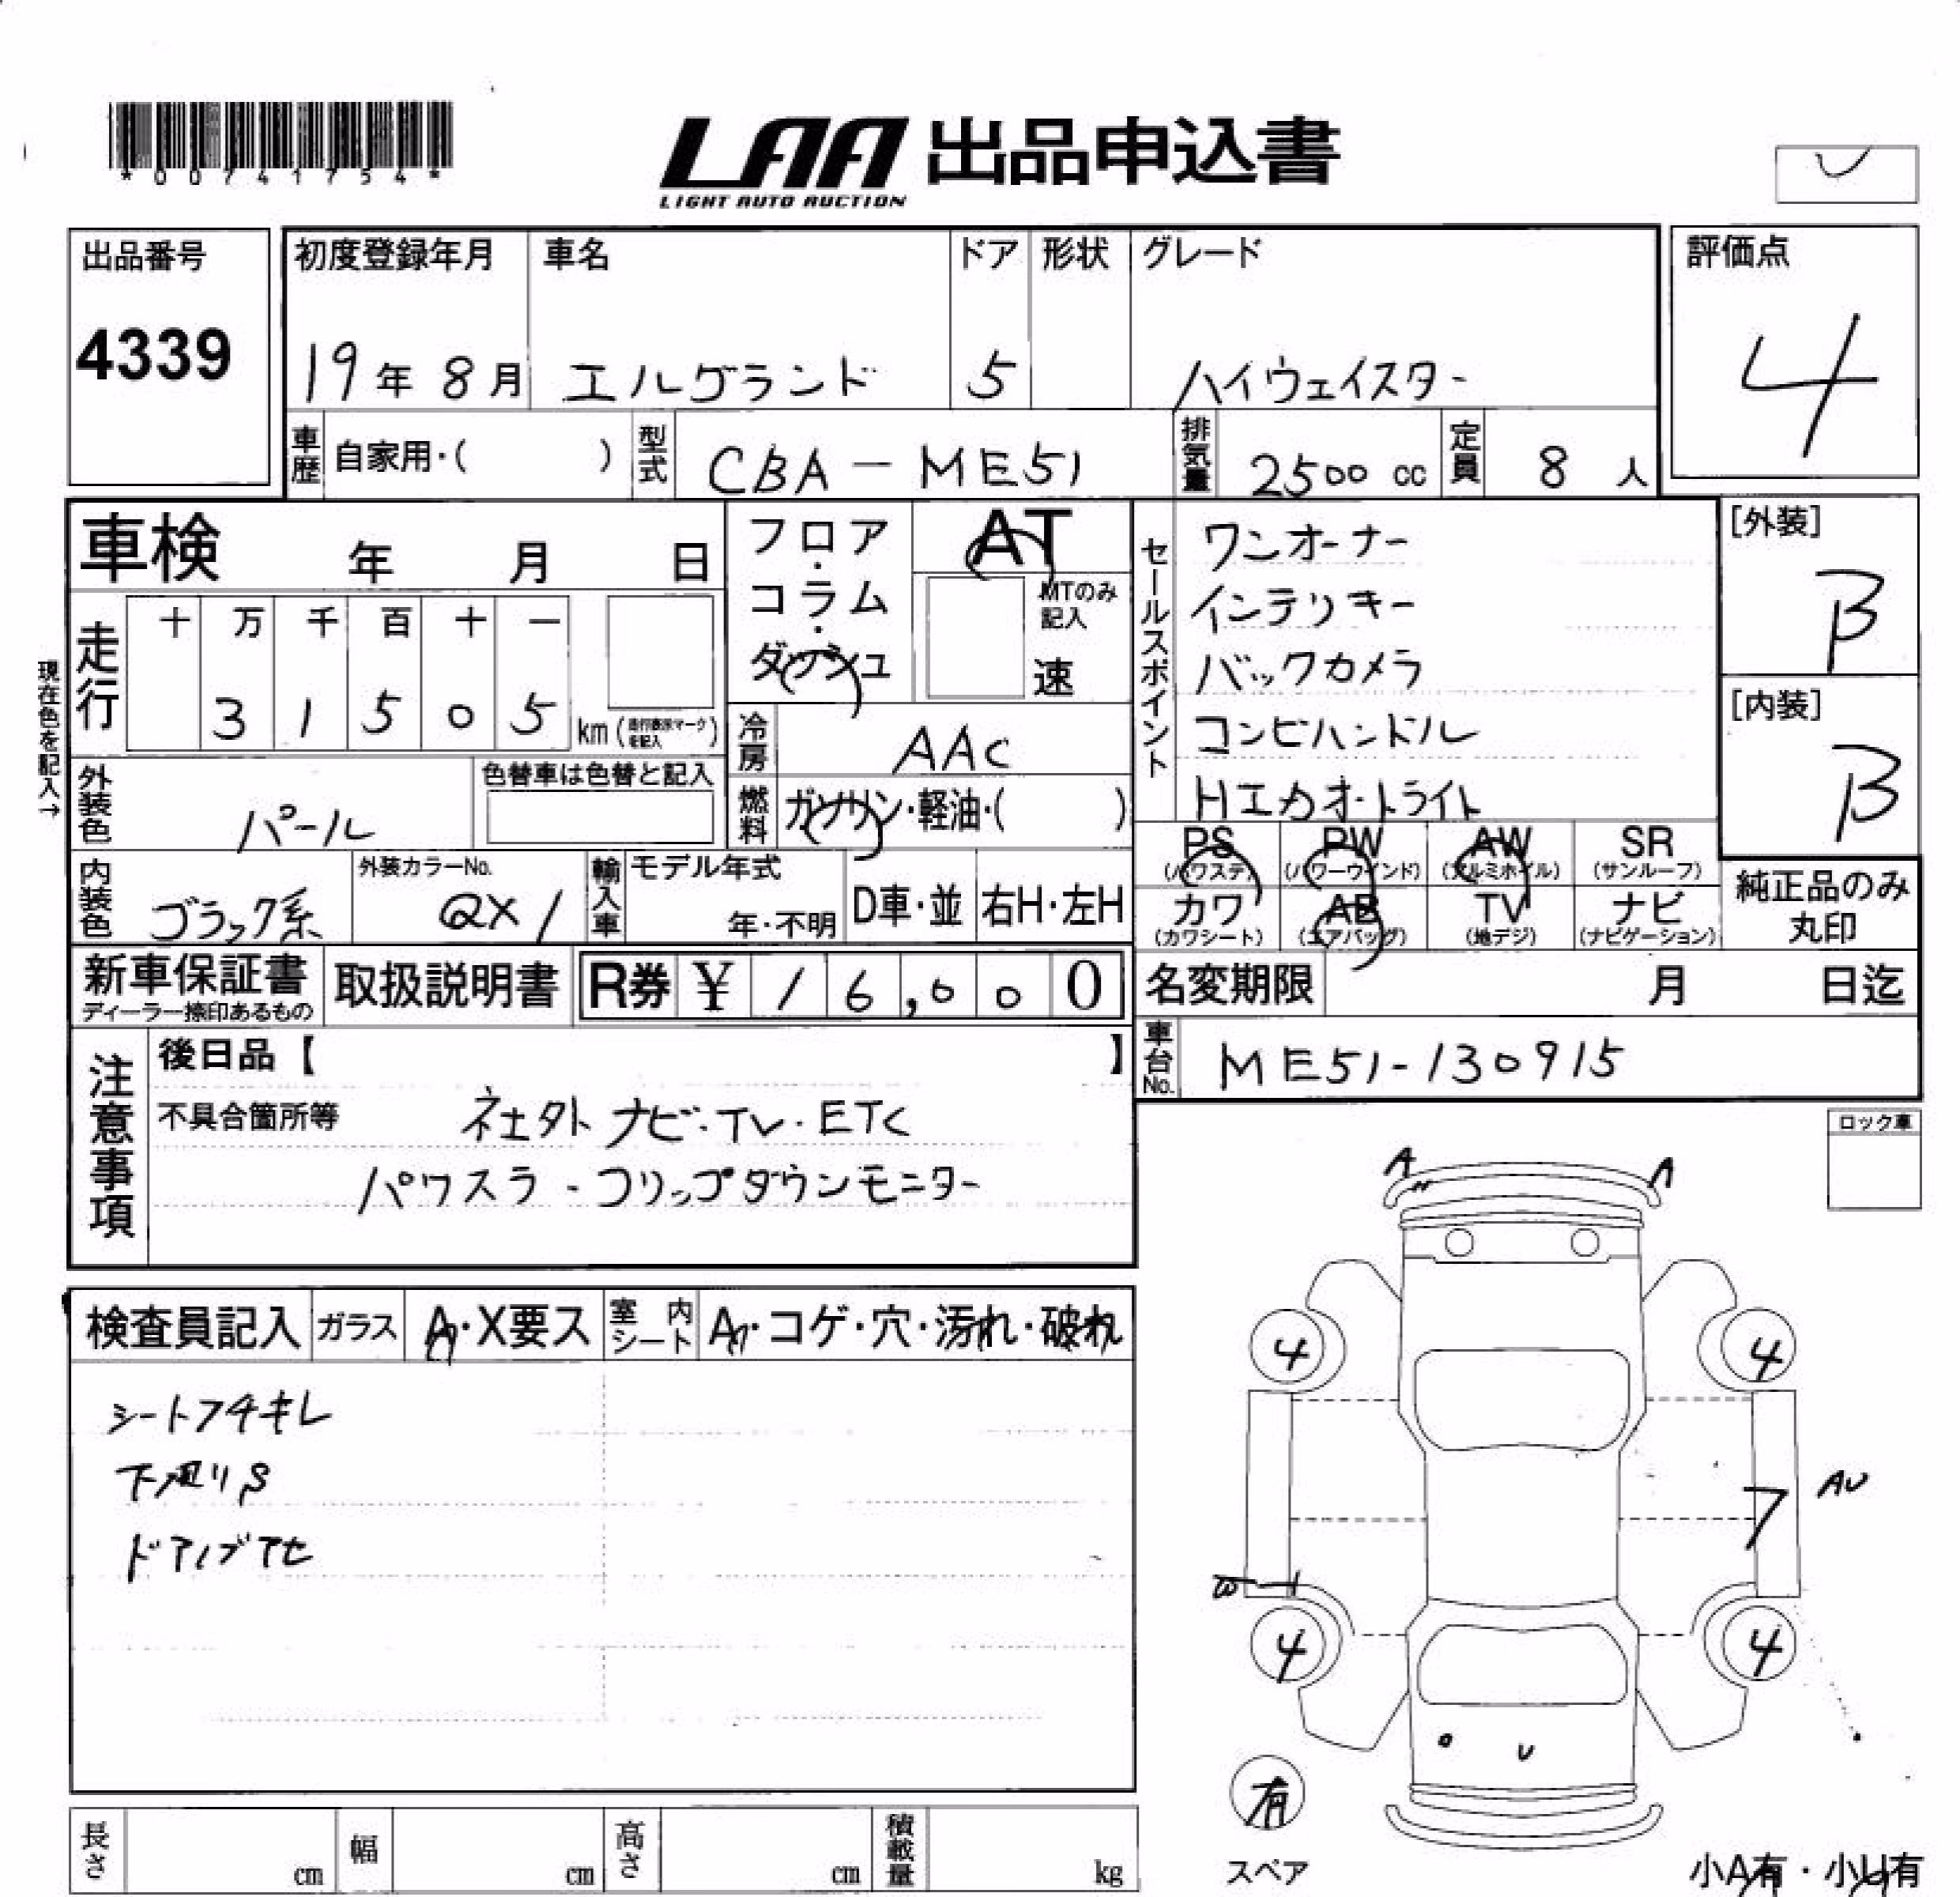 *00741754*
LAA 出品申込書
LIGHT AUTO AUCTION
出品番号
4339
初度登録年月
19年 8月
車名
エルグランド
ドア
5
形状
グレード
ハイウェイスター
評価点
4
車歴
自家用・( )
型式
CBA-ME51
排気量
2500 cc
定員
8 人
車検 年 月 日
現在色を記入→
走行
十 万 千 百 十 一
3 1 5 0 5 km(走行表示マークを記入)
フロア・コラム・ダッシュ
AT
MTのみ記入
速
冷房
AAC
燃料
ガソリン・軽油・( )
外装色
パール
色替車は色替と記入
内装色
ブラック系
外装カラーNo.
QX1
輸入車
モデル年式
年・不明
D車・並
右H・左H
セールスポイント
ワンオーナー
インテリキー
バックカメラ
コンビハンドル
HIDオートライト
[外装]
B
[内装]
B
PS (パワステ)
PW (パワーウインド)
AW (アルミホイル)
SR (サンルーフ)
カワ (カワシート)
AB (エアバッグ)
TV (地デジ)
ナビ (ナビゲーション)
純正品のみ丸印
新車保証書
ディーラー捺印あるもの
取扱説明書
R券 ¥ 16,000
名変期限 月 日迄
車台No.
ME51-130915
注意事項
後日品【 】
不具合箇所等
社外ナビ・TV・ETC
パワスラ・フリップダウンモニター
ロック車
検査員記入
ガラス
A・X要ス
室内シート
A・コゲ・穴・汚れ・破れ
シートフチキレ
下廻りS
ドアノブアセ
A
A
4
4
7
AU
W
4
4
U
有
スペア
小A有・小U有
長さ cm
幅 cm
高さ cm
積載量 kg